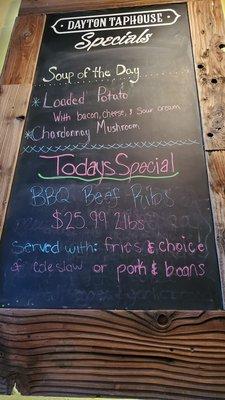 DAYTON TAPHOUSE
Specials
Soup of the Day
* Loaded Potato
With bacon, cheese, & Sour cream
* Chardonnay Mushroom
Todays Special
BBQ Beef Ribs
$25.99 2lbs
Served with: fries & choice
of coleslaw or pork & beans